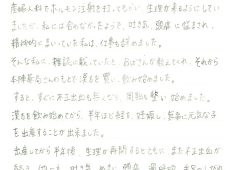 産婦人科でホルモン注射を打ってもらい生理が来るようにしてい
ましたが、私には合わなかったようで、吐き気、頭痛に悩まされ、
精神的にまいっていた私は、仕事も辞めました。
そんな私に、雑誌に載っていたと、おばさんが教えてくれ、それから
さんのもとで漢方を買い、飲み始めました。
すると、すぐに不正出血も無くなり、周期も整い始めました。
漢方を飲み始めてから、半年ほどで妊娠し、無事に元気な子
を出産することが出来ました。
出産してから半年後、生理が再開するとともに、また不正出血が
吐き気、めまい、頭痛